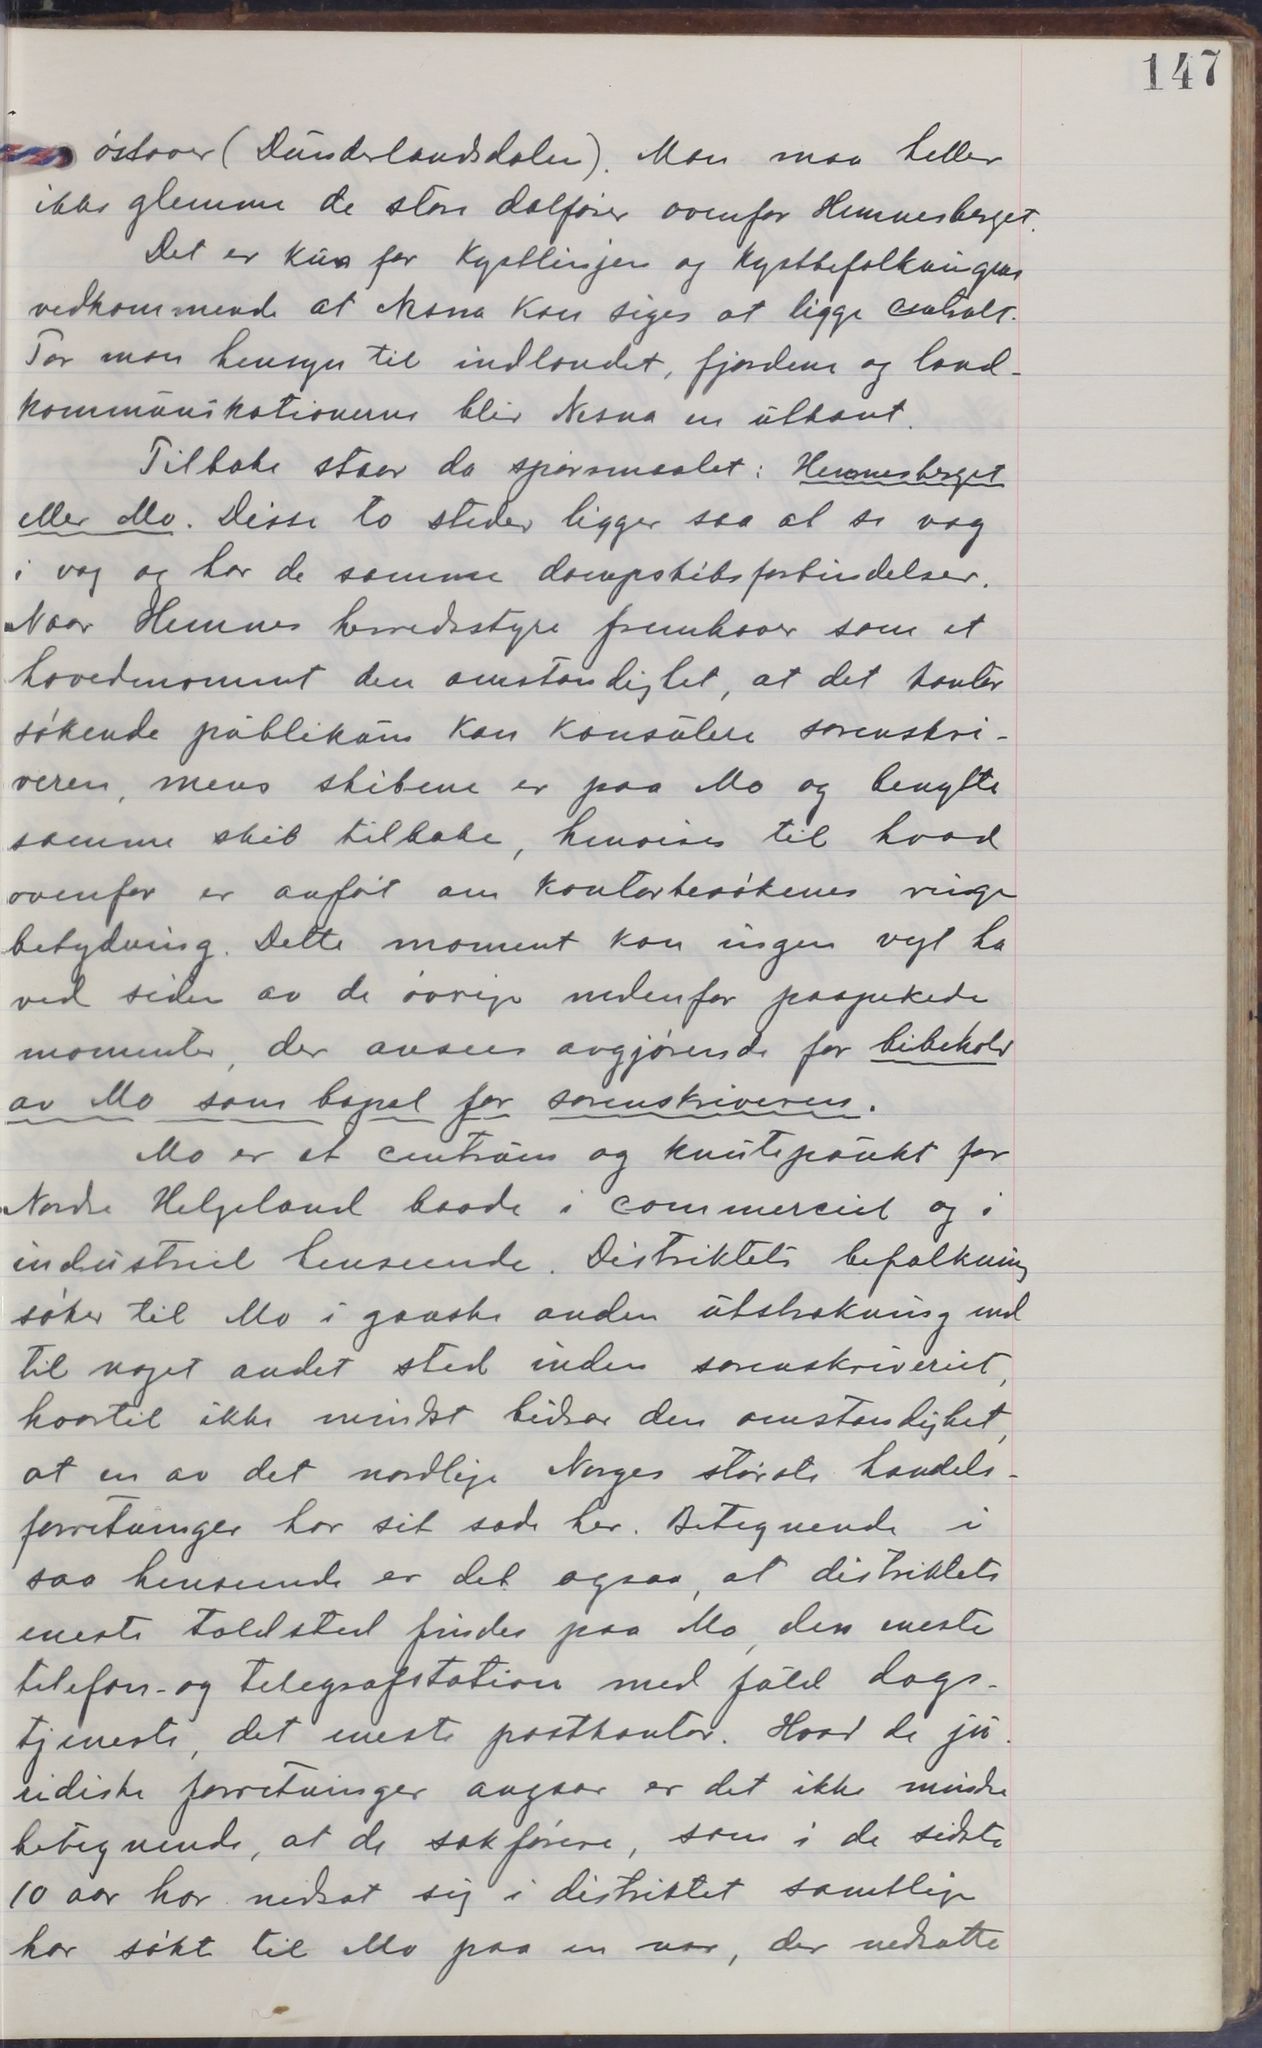 147
östover (Dunderlandsdalen). Man maa heller
ikke glemme de store dalfører ovenfor Hemnesberget.
Det er kun for kystlinjen og kystbefolkningens
vedkommende at Nesna kan siges at ligge centralt.
Tar man hensyn til indlandet, fjordene og land-
kommunikationerne blir Nesna en utkant.
Tilbake staar da spørsmaalet: Hemnesberget
eller Mo. Disse to steder ligger saa at si væg
i væg og har de samme dampskibsforbindelser.
Naar Hemnes herredsstyre fremhæver som et
hovedmoment den omstændighet, at det kontor
søkende publikum kan konsulere sorenskri-
veren, mens skibene er paa Mo og benytte
samme skib tilbake, henvises til hvad
ovenfor er anført om kontorbesøkenes ringe
betydning. Dette moment kan ingen vegt ha
ved siden av de øvrige nedenfor paapekede
momenter, der ansees avgjørende for bibehold
av Mo som bopæl for sorenskriveren.
Mo er et centrum og knutepunkt for
Nordre Helgeland baade i commerciel og i
industriel henseende. Distriktets befolkning
søker til Mo i ganske anden utstrækning end
til noget andet sted inden sorenskriveriet,
hvortil ikke mindst bidrar den omstændighet,
at en av det nordlige Norges største handels-
forretninger har sit sæde her. Betegnende i
saa henseende er det ogsaa, at distriktets
eneste toldsted findes paa Mo, den eneste
telefon- og telegrafstation med fuld dags-
tjeneste, det eneste postkontor. Hvad de ju-
ridiske forretninger angaar er det ikke mindre
betegnende, at de sakførere, som i de sidste
10 aar har nedsat sig i distriktet samtlige
har søkt til Mo paa en nær, der nedsatte